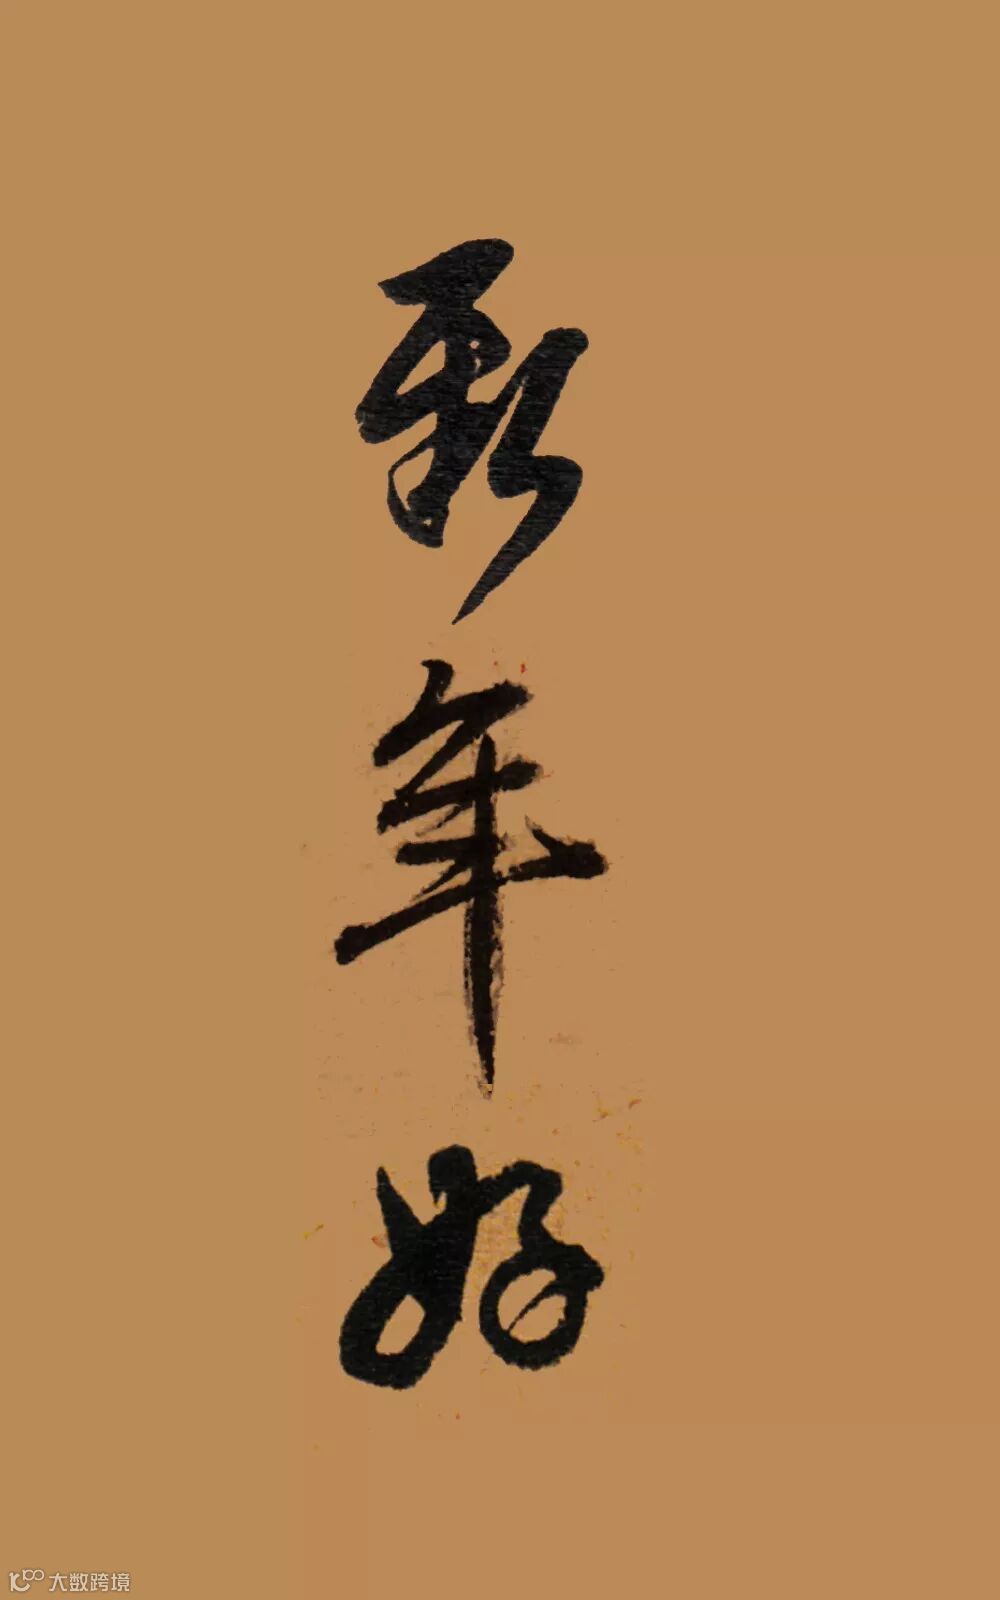 新年好
大数跨境